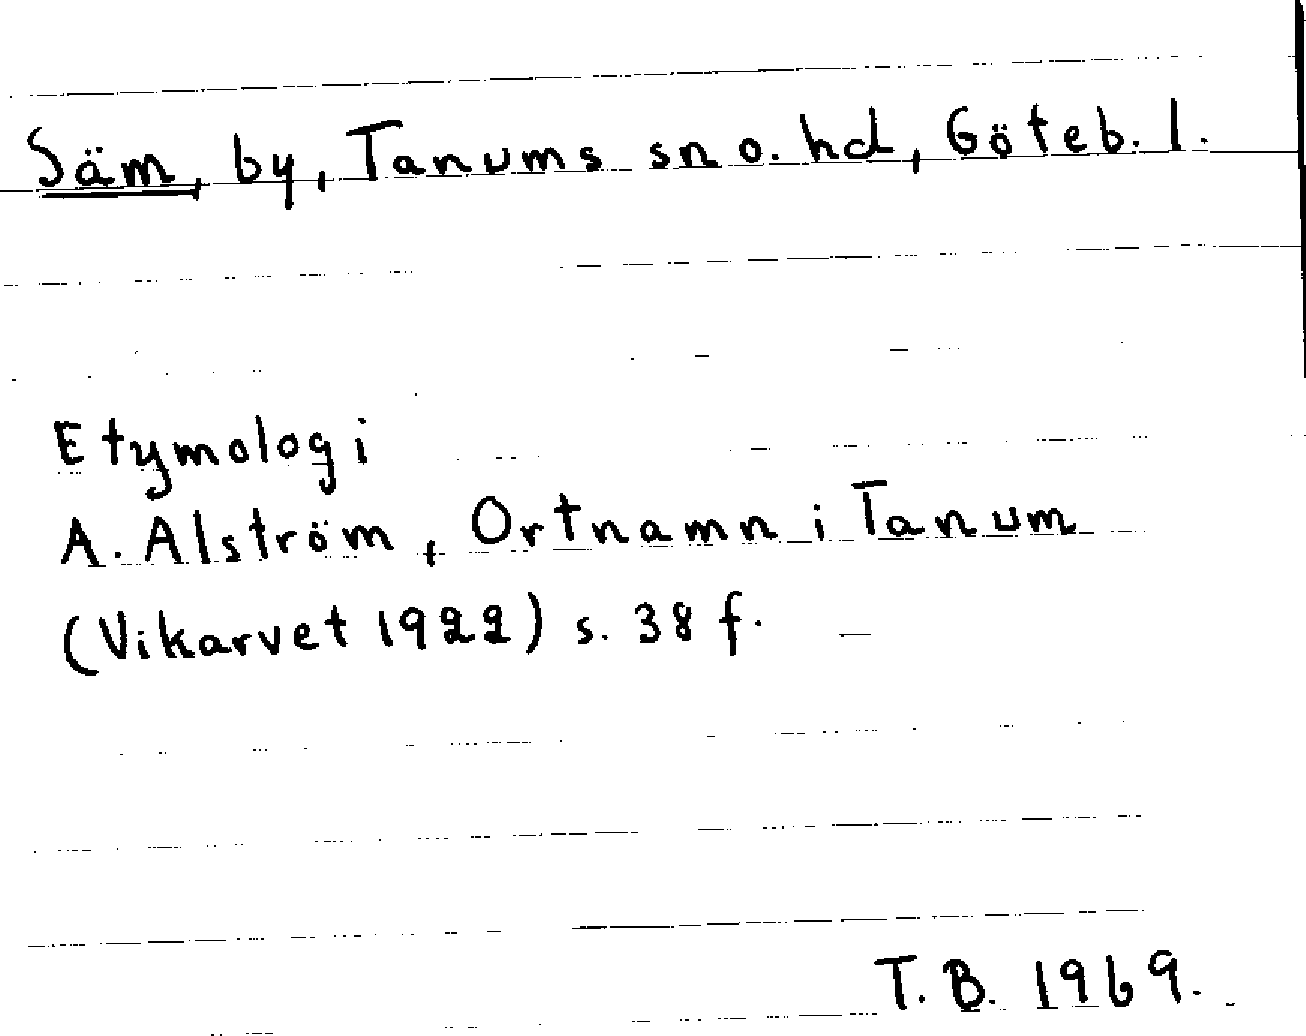 Säm, by, Tanums sn o. hd, Göteb. l.
Etymologi
A. Alström, Ortnamn i Tanum
(Vikarvet 1922) s. 38 f.
T. B. 1969.